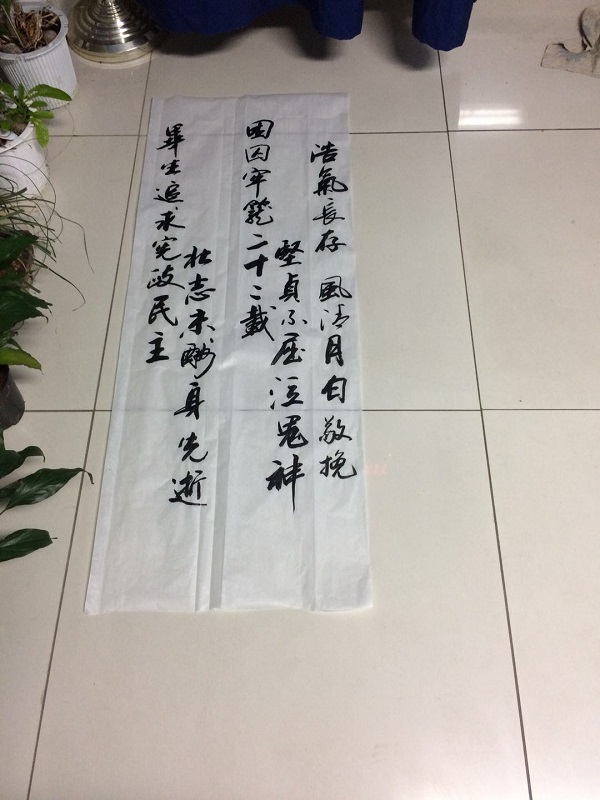 畢生追求宪政民主
壮志未酬身先逝
困囚牢籠二十二載
堅貞不屈泣鬼神
浩氣長存 風清月白敬挽